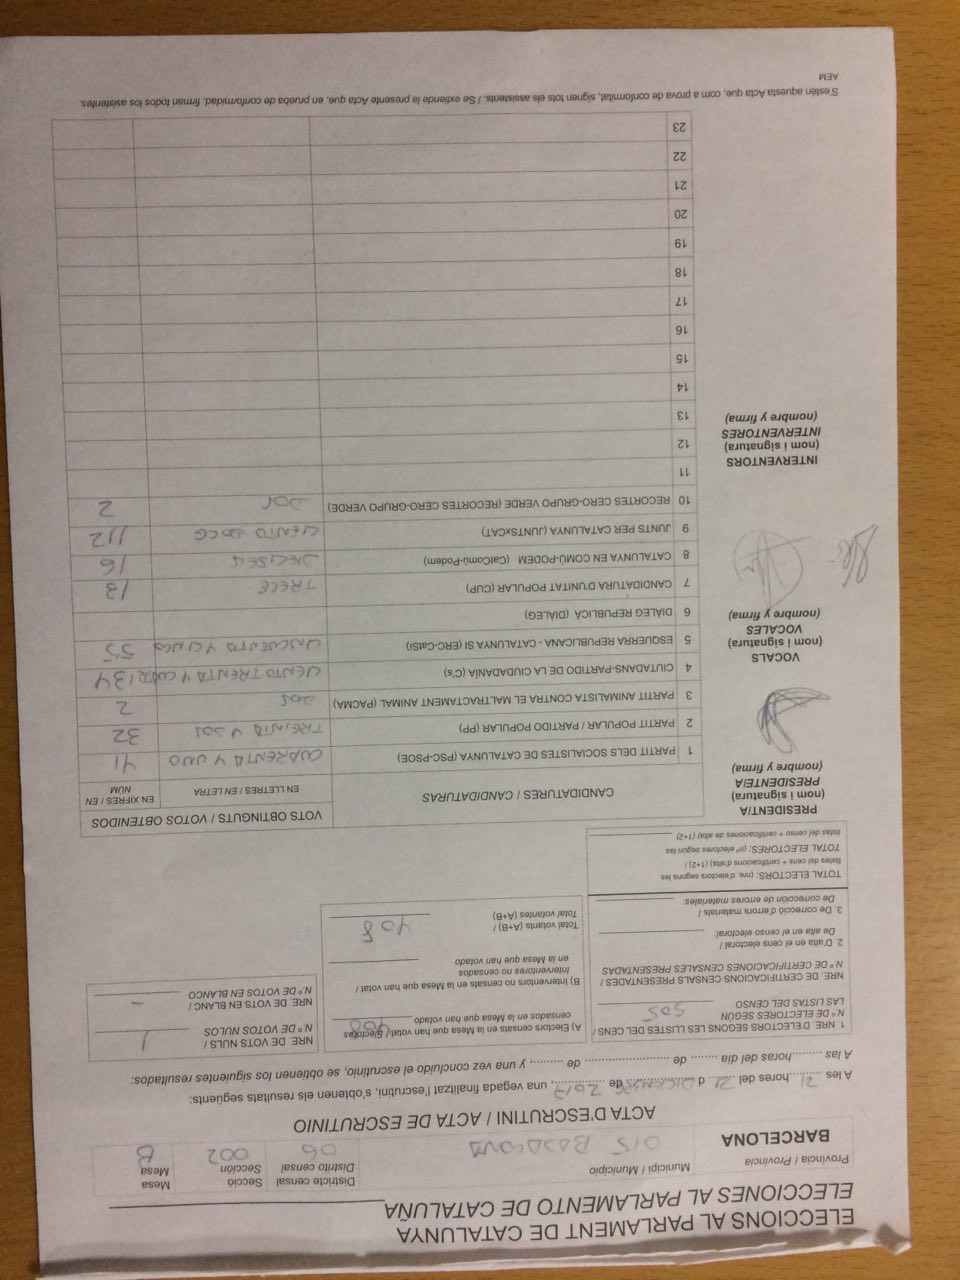 ELECCIONS AL PARLAMENT DE CATALUNYA
ELECCIONES AL PARLAMENTO DE CATALUÑA
Província / Provincia
BARCELONA
Municipi / Municipio
015 BADALONA
Districte censal
Distrito censal
06
Secció
Sección
002
Mesa
Mesa
B
ACTA D'ESCRUTINI / ACTA DE ESCRUTINIO
A les 21 hores del 21 d DICIEMBRE de 2017, una vegada finalitzat l'escrutini, s'obtenen els resultats següents:
A las ......... horas del día ....... de ........................ de ........., y una vez concluido el escrutinio, se obtienen los siguientes resultados:
1. NRE. D'ELECTORS SEGONS LES LLISTES DEL CENS /
Nº DE ELECTORES SEGÚN
LAS LISTAS DEL CENSO 505
NRE. DE CERTIFICACIONS CENSALS PRESENTADES /
Nº DE CERTIFICACIONES CENSALES PRESENTADAS
2. D'alta en el cens electoral /
De alta en el censo electoral:
3. De correcció d'errors materials /
De corrección de errores materiales:
TOTAL ELECTORS: (nre. d'electors segons les
llistes del cens + certificacions d'alta) (1+2) /
TOTAL ELECTORES: (nº electores según las
listas del censo + certificaciones de alta) (1+2)
A) Electors censats en la Mesa que han votat / Electores
censados en la Mesa que han votado 408
B) Interventors no censats en la Mesa que han votat /
Interventores no censados
en la Mesa que han votado
Total votants (A+B) /
Total votantes (A+B) 408
NRE. DE VOTS NULS /
Nº DE VOTOS NULOS 1
NRE. DE VOTS EN BLANC /
Nº DE VOTOS EN BLANCO -
PRESIDENT/A
(nom i signatura)
PRESIDENTE/A
(nombre y firma)
VOCALS
(nom i signatura)
VOCALES
(nombre y firma)
INTERVENTORS
(nom i signatura)
INTERVENTORES
(nombre y firma)
CANDIDATURES / CANDIDATURAS
VOTS OBTINGUTS / VOTOS OBTENIDOS
EN LLETRES / EN LETRA
EN XIFRES / EN NÚM
1 PARTIT DELS SOCIALISTES DE CATALUNYA (PSC-PSOE) CUARENTA Y UNO 41
2 PARTIT POPULAR / PARTIDO POPULAR (PP) TREINTA Y DOS 32
3 PARTIT ANIMALISTA CONTRA EL MALTRACTAMENT ANIMAL (PACMA) DOS 2
4 CIUTADANS-PARTIDO DE LA CIUDADANÍA (C's) CIENTO TRENTA Y CUATRO 134
5 ESQUERRA REPUBLICANA - CATALUNYA SI (ERC-CatSí) CINCUENTA Y CINCO 55
6 DIÀLEG REPUBLICÀ (DIÀLEG)
7 CANDIDATURA D'UNITAT POPULAR (CUP) TRECE 13
8 CATALUNYA EN COMÚ-PODEM (CatComú-Podem) DIECISEIS 16
9 JUNTS PER CATALUNYA (JUNTSxCAT) CIENTO DOCE 112
10 RECORTES CERO-GRUPO VERDE (RECORTES CERO-GRUPO VERDE) DOS 2
11
12
13
14
15
16
17
18
19
20
21
22
23
S'estén aquesta Acta que, com a prova de conformitat, signen tots els assistents. / Se extiende la presente Acta que, en prueba de conformidad, firman todos los asistentes.
AEM